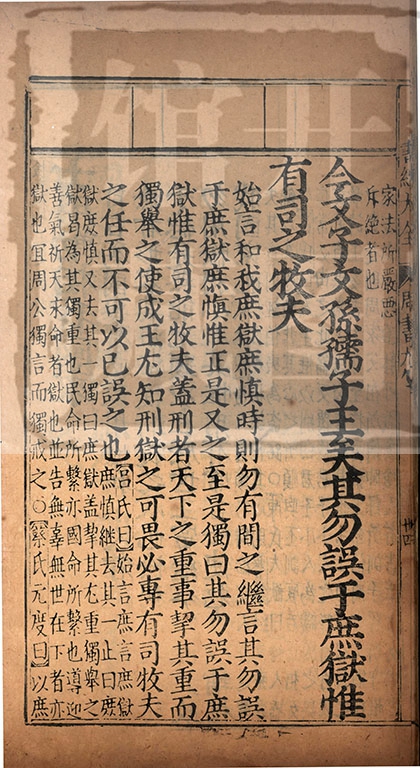 家法所嚴惡
斥絶者也
今文子文孫孺子王矣其勿誤于庶獄惟
有司之牧夫
始言和我庶獄庶慎時則勿有間之繼言其勿誤
于庶獄庶慎惟正是乂之至是獨曰其勿誤于庶
獄惟有司之牧夫蓋刑者天下之重事挈其重而
獨舉之使成王尤知刑獄之可畏必專有司牧夫
之任而不可以已誤之也【呂氏曰】始言庶言庶獄
庶慎繼去其一止曰庶
獄庶慎又去其一獨曰庶獄盖挈其尤重獨舉之
獄曷為其獨重也民命所繫亦國命所繫也導迎
善氣祈天永命者獄也並告無辜無世在下者亦
獄也宜周公獨言而獨戒之○【蔡氏元度曰】以庶
書經大全
周書九
卅四